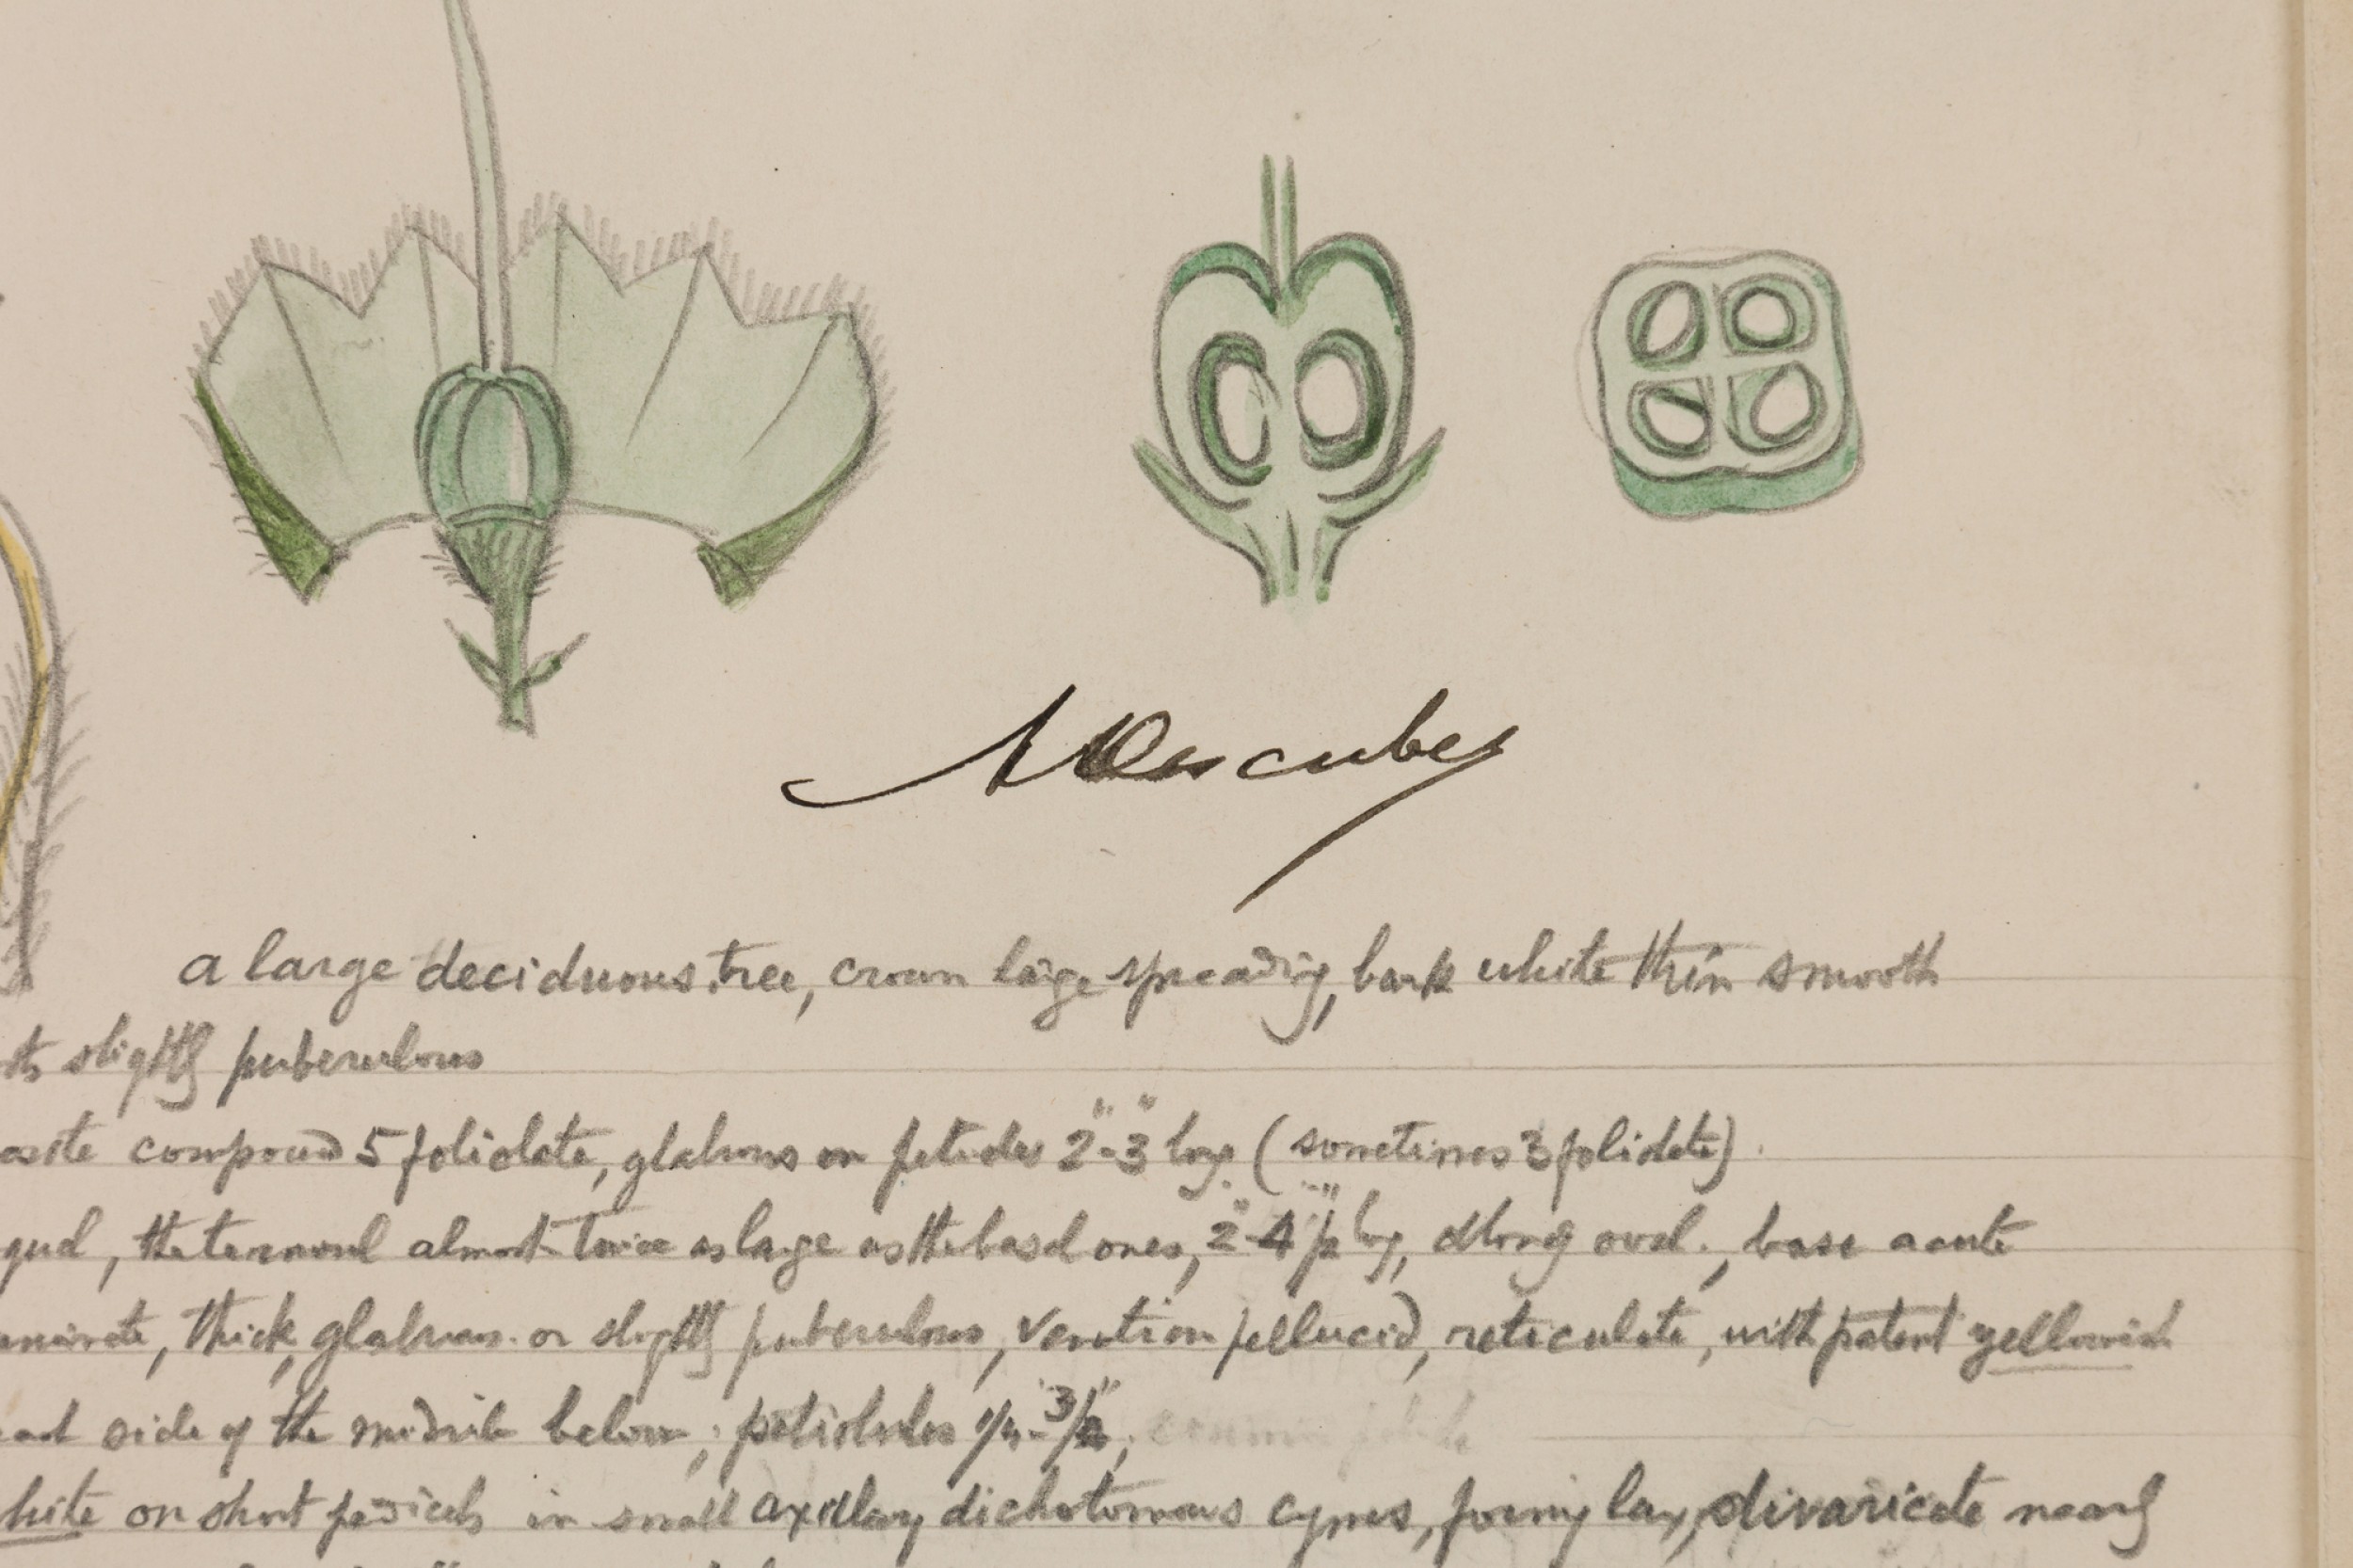 a large deciduous tree, crown large spreading, bark white thin smooth
slightly puberulous
compound 5 foliolate, glabrous on petioles 2"-3" long (sometimes 3 foliolate).
the terminal almost twice as large as the basal ones, 2"-4" long, oblong oval., base acute
thick, glabrous or slightly puberulous, venation pellucid, reticulate, with patent yellowish
side of the midrib below; petiolules
on short pedicels in small axillary dichotomous cymes, forming lax, divaricate nearly